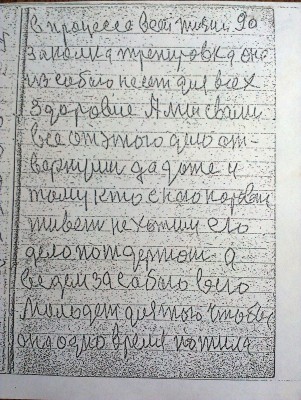 в процессе всей жизни За
закалка тренировка она
из собою несет для всех
здоровие А мы с вами
все от этого дело от-
вергнули да даже и
тому кто с ного народ
живет не хотим его
дело потдержат а
ведем за собою всю
молодеж для того чтобы
она одно время пожила